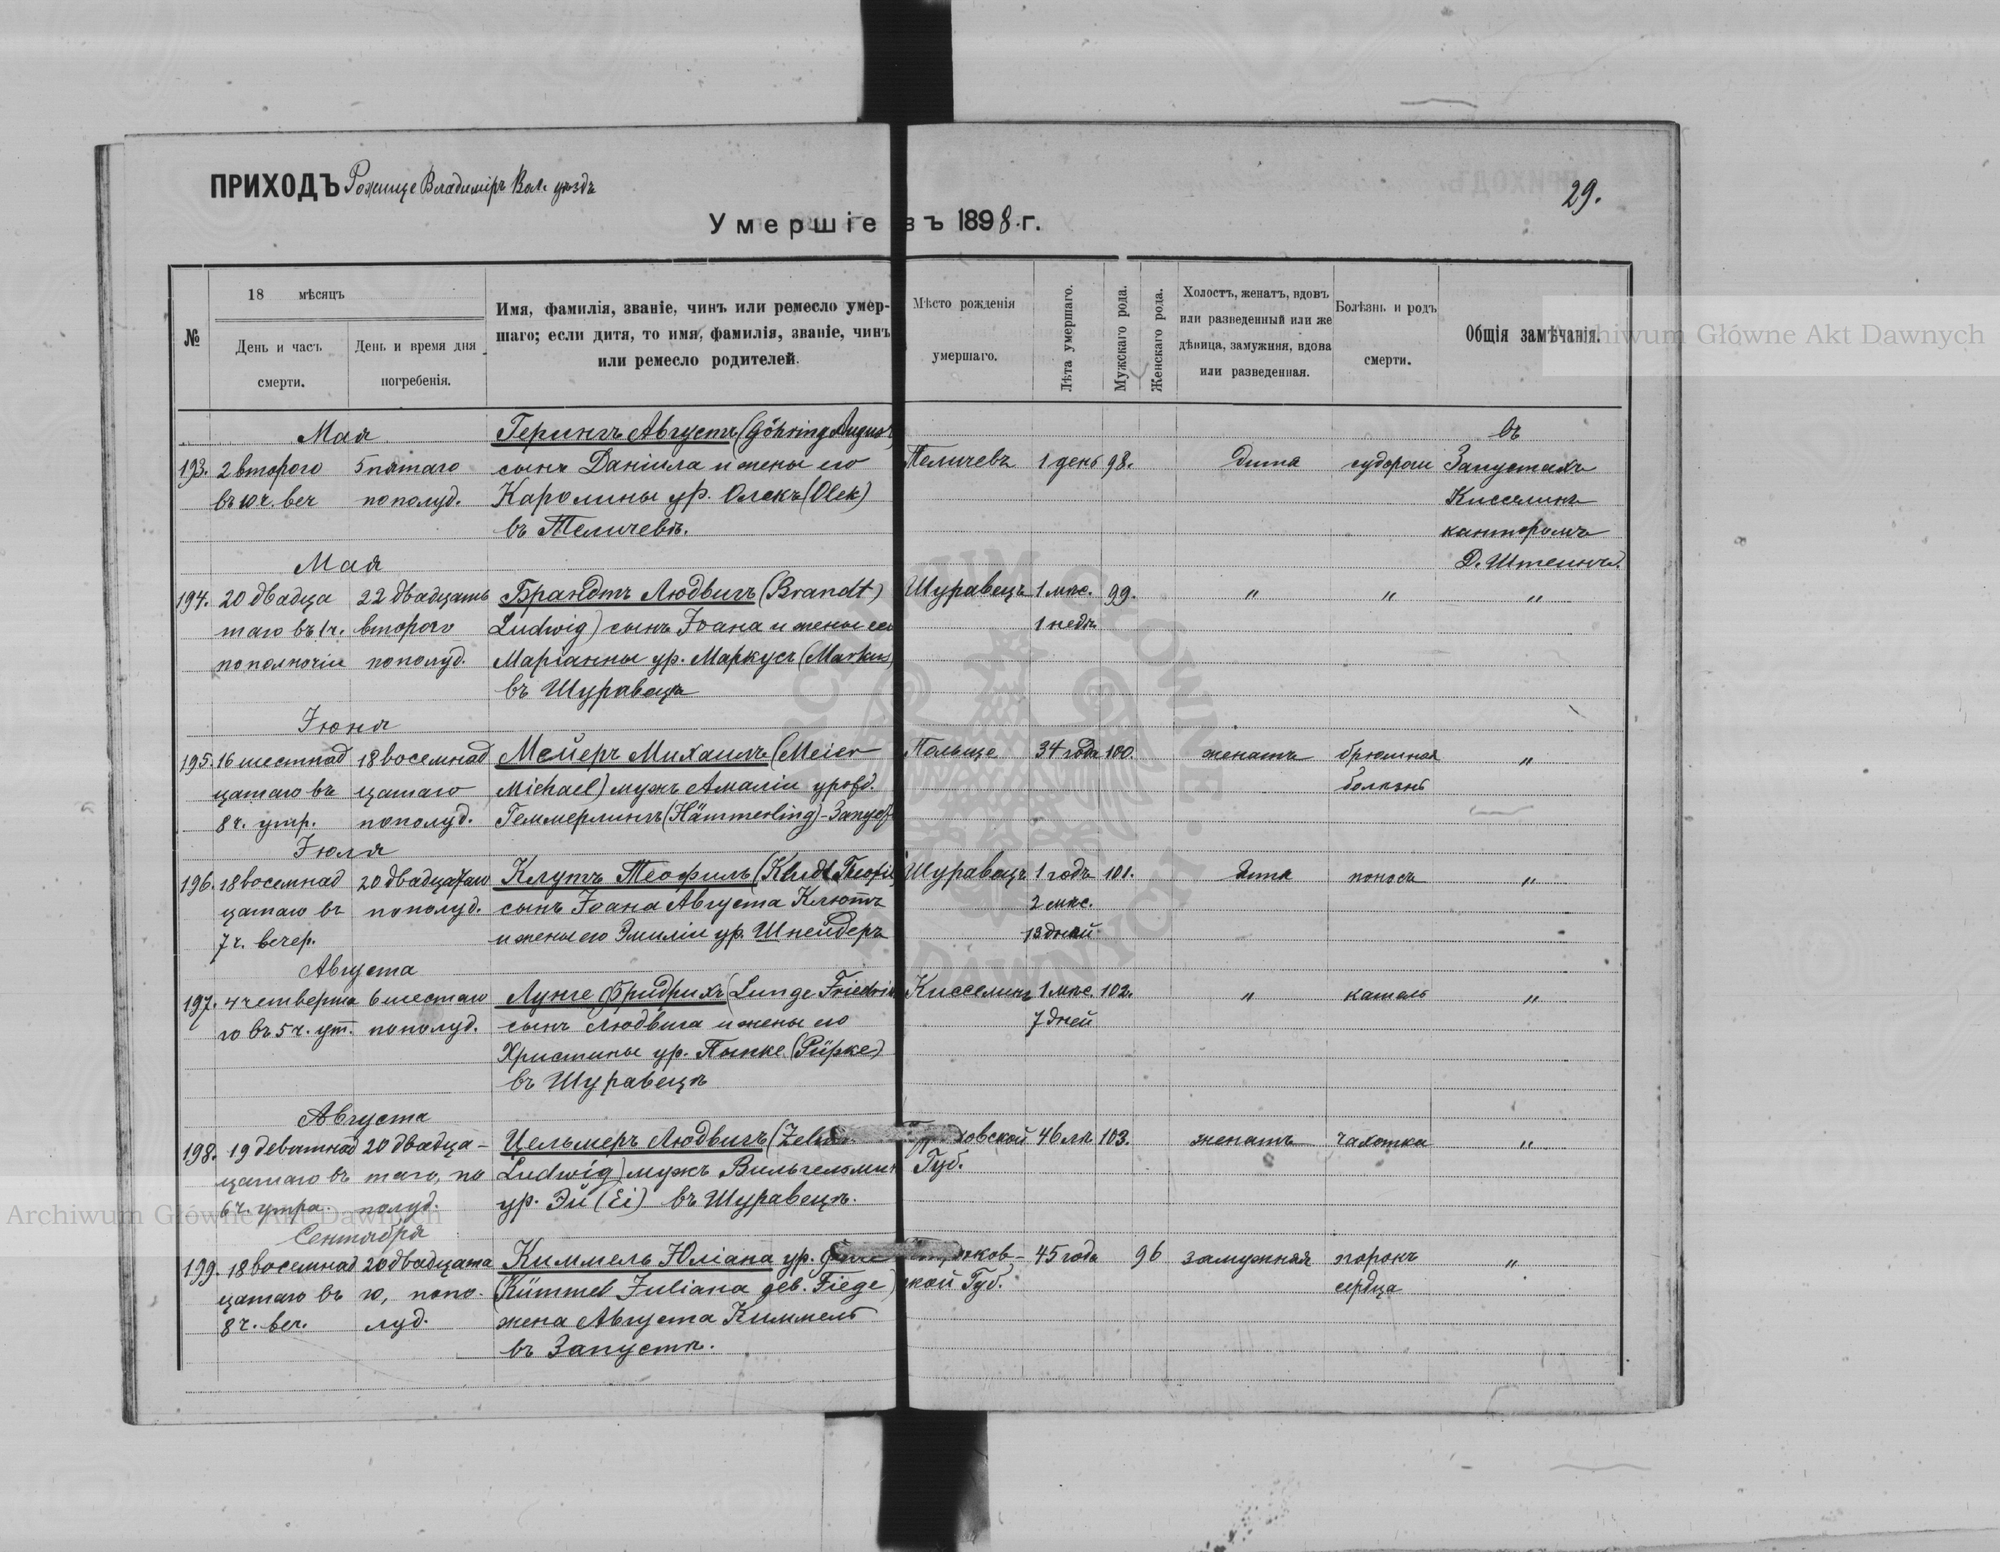 ПРИХОДЪ Рожище Владимiръ Вол. уѣздъ
29.
Умершіе въ 1898 г.
№
18 мѣсяцъ
День и часъ смерти.
День и время дня погребенія.
Имя, фамилія, званіе, чинъ или ремесло умер-
шаго; если дитя, то имя, фамилія, званіе, чинъ
или ремесло родителей.
Мѣсто рожденія
умершаго.
Лѣта умершаго.
Мужскаго рода.
Женскаго рода.
Холостъ, женатъ, вдовъ
или разведенный или же
дѣвица, замужняя, вдова
или разведенная.
Болѣзнь и родъ
смерти.
Общія замѣчанія.
Archiwum Główne Akt Dawnych
Мая Герингъ Августъ (Göhring August) въ
193. 2 второго 5 пятаго сынъ Даніила и жены его Теличевъ 1 день 98. дитя судороги Запустахъ
въ 10 ч. веч пополуд. Каролины ур. Олекъ (Olek) Кисселинъ
въ Теличевѣ. канторомъ
Мая Д. Штейнъ.
194. 20 двадца 22 двадцать Брандтъ Людвигъ (Brandt Шуравецъ 1 мѣс. 99. " " "
таго въ 1 ч. второго Ludwig) сынъ Іоана и жены его 1 недѣ.
пополночи пополуд. Маріанны ур. Маркусъ (Markus)
въ Шуравецѣ
Іюня
195. 16 шестнад 18 восемнад Мейеръ Михаилъ (Meier Польще 34 года 100. женатъ брюшная "
цатаго въ цатаго Michael) мужъ Амаліи урожд. болѣзнь
8 ч. утр. пополуд. Геммерлингъ (Hämmerling) - Запуст
Іюля
196. 18 восемнад 20 двадцатаго Клутъ Теофилъ (Kludt Teofil Шуравецъ 1 годъ 101. дитя поносъ "
цатаго въ пополуд. сынъ Іоана Августа Клютъ 2 мѣс.
7 ч. вечер. и жены его Эмиліи ур. Шнейдеръ 13 дней
Августа
197. 4 четверта 6 шестаго Лунге Фридрихъ (Lunge Friedrich Кисселинъ 1 мѣс. 102. " кашель "
го въ 5 ч. ут. пополуд. сынъ Людвига и жены его 7 дней
Христины ур.
въ Шуравецѣ
Августа
198. 19 девятнад 20 двадца- Цельмеръ Людвигъ ховской 46 лѣ 103. женатъ чахотка "
цатаго въ таго, по Ludwig) мужъ Вильгельмин Губ.
6 ч. утра. полуд. ур. Эй (Ei) въ Шуравецъ.
Archiwum Główne Akt Dawnych
Сентября
199. 18 восемнад 20 двадцата Киммель Юліана ур. ков- 45 года 96 замужняя порокъ "
цатаго въ го, попо. (Kümmel Juliana geb. Fiege) ской Губ. сердца
8 ч. веч. луд. жена Августа Киммель
въ Запустѣ.
ARCHIWUM GŁÓWNE AKT DAWNYCH